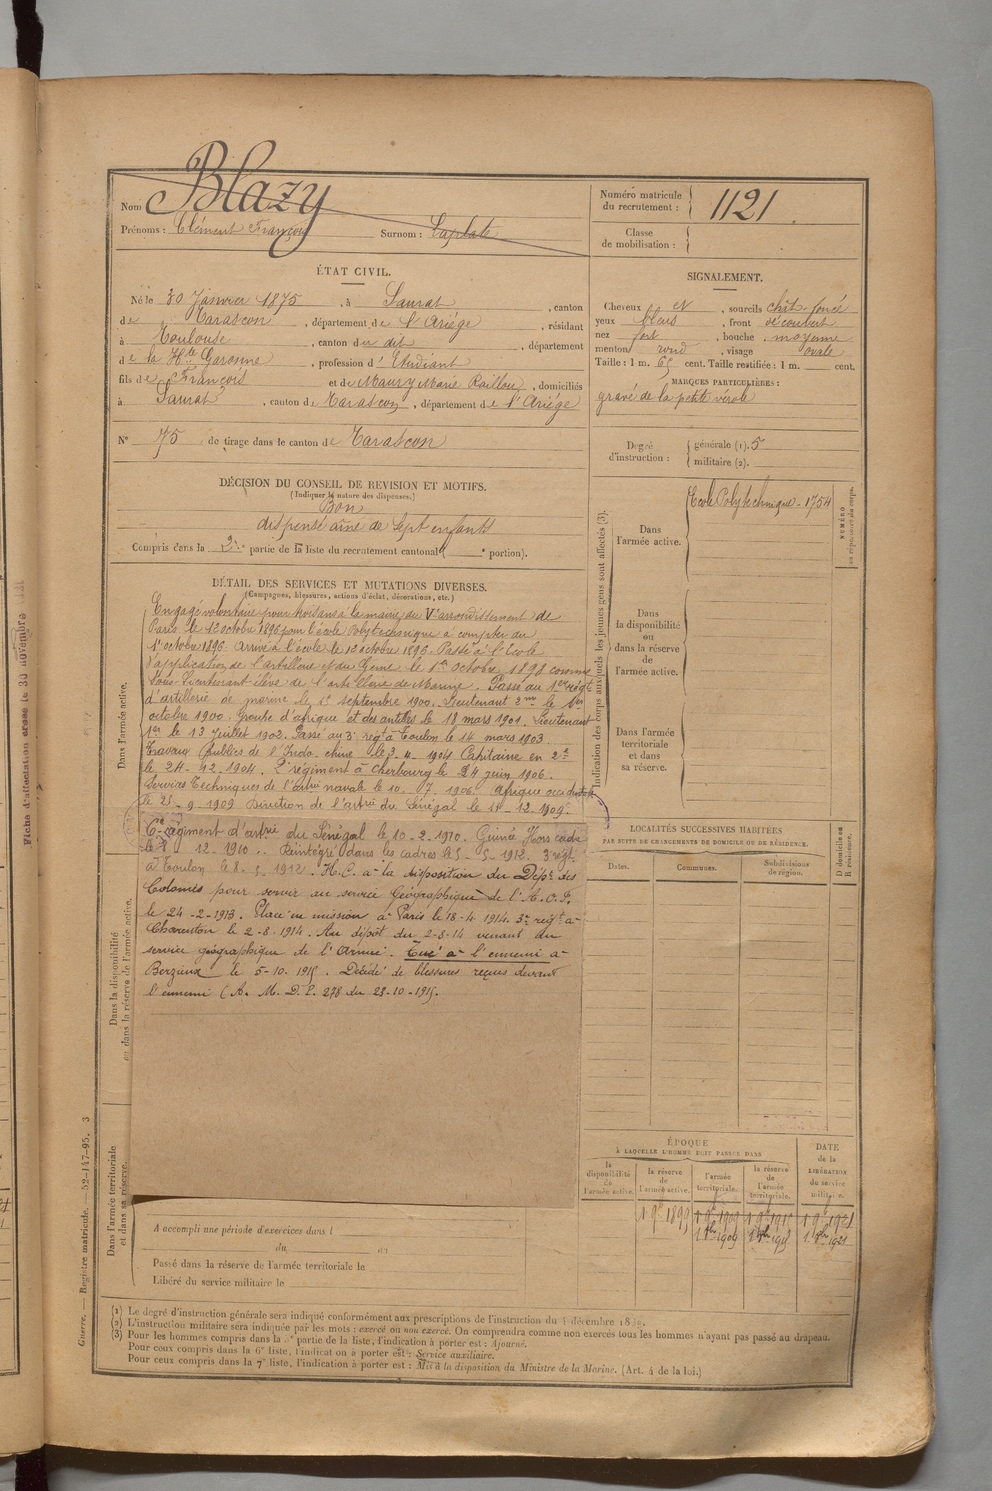 Nom Blazy
Prénoms : Clément François Surnom :
Numéro matricule du recrutement : 1121
Classe de mobilisation :
ÉTAT CIVIL.
Né le 30 Janvier 1875, à Saurat, canton
de Tarascon, département de l'Ariége, résidant
à Toulouse, canton du dit, département
de la Hte Garonne, profession d'Etudiant
fils de François et de Maury Marie Paillou, domiciliés
à Saurat, canton de Tarascon, département de l'Ariége
N° 75 de tirage dans le canton de Tarascon
DÉCISION DU CONSEIL DE REVISION ET MOTIFS.
(Indiquer la nature des dispenses.)
Bon
dispensé aîné de sept enfants
Compris dans la 2e partie de la liste du recrutement cantonal ( e portion).
DÉTAIL DES SERVICES ET MUTATIONS DIVERSES.
(Campagnes, blessures, actions d'éclat, décorations, etc.)
Engagé volontaire pour trois ans à la mairie du Ve arrondissement de
Paris le 12 octobre 1896 pour l'école Polytechnique à compter du
1er octobre 1896. Arrivé à l'école le 12 octobre 1896. Passé à l'Ecole
d'application de l'artillerie et du Génie le 1er Octobre 1898 comme
Sous-Lieutenant élève de l'artillerie de Marine. Passé au 1er régt
d'artillerie de marine le 1er septembre 1900. Lieutenant 2me le 1er
octobre 1900. Groupe d'afrique et des antilles le 18 mars 1901. Lieutenant
1er le 13 Juillet 1902. Passé au 3e régt à Toulon le 14 mars 1903.
Travaux Publics de l'Indo-chine le 3-4-1904 Capitaine en 2d
le 24-12-1904. 2e régiment à Cherbourg le 24 juin 1906.
Services Techniques de l'artrie navale le 10-7-1906. Afrique occidentale
le 25-9-1909 Direction de l'artrie du Sénégal le 12-1909.
Régiment d'artrie du Sénégal le 10-2-1910. Guinée Hors cadre
le 8 12-1910. Réintégré dans les cadres le 5-5-1912. 3e régt
à Toulon le 8-5-1912. H.C. à la disposition du Dépt des
Colonies pour servir au service Géographique de l'A.O.F.
le 24-2-1913. Placé en mission à Paris le 18-4-1914. 3e régt à
Charenton le 2-8-1914. Au dépôt du 2-8-14 venant du
service géographique de l'Armée. Tué à l'ennemi à
Berzieux le 5-10-1915. Décédé de blessures reçues devant
l'ennemi (A. M. D. P. 278 du 23-10-1915.
Dans l'armée active.
Dans la disponibilité ou dans la réserve de l'armée active.
Dans l'armée territoriale et dans sa réserve.
A accompli une période d'exercices dans l
du au
Passé dans la réserve de l'armée territoriale le
Libéré du service militaire le
SIGNALEMENT.
Cheveux et, sourcils chât. foncé
yeux bleus, front découvert
nez fort, bouche moyenne
menton rond, visage ovale
Taille : 1 m. 65 cent. Taille rectifiée : 1 m. cent.
MARQUES PARTICULIÈRES :
gravé de la petite vérole
Degré d'instruction : générale (1). 5
militaire (2).
Indication des corps auxquels les jeunes gens sont affectés (3).
Dans l'armée active.
Ecole Polytechnique - 1754
NUMÉRO au répertoire du corps.
Dans la disponibilité ou dans la réserve de l'armée active.
Dans l'armée territoriale et dans sa réserve.
LOCALITÉS SUCCESSIVES HABITÉES
PAR SUITE DE CHANGEMENTS DE DOMICILE OU DE RÉSIDENCE.
Dates. Communes. Subdivisions de région. D domicile ou R résidence.
ÉPOQUE
À LAQUELLE L'HOMME DOIT PASSER DANS
la disponibilité de l'armée active.
la réserve de l'armée active.
l'armée territoriale.
la réserve de l'armée territoriale.
DATE de la LIBÉRATION du service militaire.
1 9e 1899
(1) Le degré d'instruction générale sera indiqué conformément aux prescriptions de l'instruction du décembre
(2) L'instruction militaire sera indiquée par les mots : exercé ou non exercé. On comprendra comme non exercés tous les hommes n'ayant pas passé au drapeau.
(3) Pour les hommes compris dans la 5e partie de la liste, l'indication à porter est : Ajourné.
Pour ceux compris dans la 6e liste, l'indication à porter est : Service auxiliaire.
Pour ceux compris dans la 7e liste, l'indication à porter est : Mis à la disposition du Ministre de la Marine. (Art. 4 de la loi.)
Guerre. — Registre matricule. — 52-147-95. 3
Fiche d'affectation créée le 30 novembre